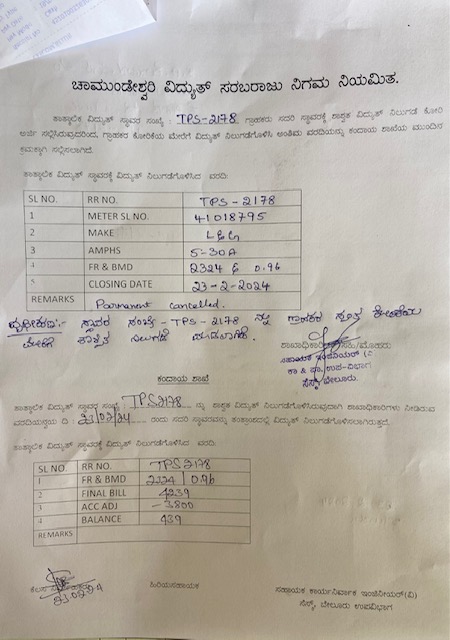 ಚಾಮುಂಡೇಶ್ವರಿ ವಿದ್ಯುತ್ ಸರಬರಾಜು ನಿಗಮ ನಿಯಮಿತ.
ತಾತ್ಕಾಲಿಕ ವಿದ್ಯುತ್ ಸ್ಥಾವರ ಸಂಖ್ಯೆ : TPS-2178 ಗ್ರಾಹಕರು ಸದರಿ ಸ್ಥಾವರಕ್ಕೆ ಶಾಶ್ವತ ವಿದ್ಯುತ್ ನಿಲುಗಡೆ ಕೋರಿ
ಅರ್ಜಿ ಸಲ್ಲಿಸಿರುವುದರಿಂದ, ಗ್ರಾಹಕರ ಕೋರಿಕೆಯ ಮೇರೆಗೆ ವಿದ್ಯುತ್ ನಿಲುಗಡೆಗೊಳಿಸಿ ಅಂತಿಮ ವರದಿಯನ್ನು ಕಂದಾಯ ಶಾಖೆಯ ಮುಂದಿನ
ಕ್ರಮಕ್ಕಾಗಿ ಸಲ್ಲಿಸಲಾಗಿದೆ.
ತಾತ್ಕಾಲಿಕ ವಿದ್ಯುತ್ ಸ್ಥಾವರಕ್ಕೆ ವಿದ್ಯುತ್ ನಿಲುಗಡೆಗೊಳಿಸಿದ ವರದಿ:
SL NO. RR NO. TPS-2178
1 METER SL NO. 41018795
2 MAKE L&G
3 AMPHS 5-30A
4 FR & BMD 2324 & 0.96
5 CLOSING DATE 23-2-2024
REMARKS Parmanent cancelled.
ದೃಢೀಕರಣ:- ಸ್ಥಾವರ ಸಂಖ್ಯೆ - TPS - 2178 ನ್ನು ಗ್ರಾಹಕರ ಸ್ವಂತ ಕೋರಿಕೆಯ
ಮೇರೆಗೆ ಶಾಶ್ವತ ನಿಲುಗಡೆ ಮಾಡಲಾಗಿದೆ.
ಶಾಖಾಧಿಕಾರಿಗಳ ಸಹಿ/ಮೊಹರು
ಸಹಾಯಕ ಇಂಜಿನಿಯರ್
ಕಾ & ಪಾ, ಉಪ-ವಿಭಾಗ
ಸೆಸ್ಕ್, ಬೇಲೂರು.
ಕಂದಾಯ ಶಾಖೆ
ತಾತ್ಕಾಲಿಕ ವಿದ್ಯುತ್ ಸ್ಥಾವರ ಸಂಖ್ಯೆ TPS2178 ನ್ನು ಶಾಶ್ವತ ವಿದ್ಯುತ್ ನಿಲುಗಡೆಗೊಳಿಸಿರುವುದಾಗಿ ಶಾಖಾಧಿಕಾರಿಗಳು ನೀಡಿರುವ
ವರದಿಯನ್ವಯ ದಿ : 23/02/24 ರಂದು ಸದರಿ ಸ್ಥಾವರವನ್ನು ತಂತ್ರಾಂಶದಲ್ಲಿ ವಿದ್ಯುತ್ ನಿಲುಗಡೆಗೊಳಿಸಲಾಗಿರುತ್ತದೆ.
ತಾತ್ಕಾಲಿಕ ವಿದ್ಯುತ್ ಸ್ಥಾವರಕ್ಕೆ ವಿದ್ಯುತ್ ನಿಲುಗಡೆಗೊಳಿಸಿದ ವರದಿ:
SL NO. RR NO. TPS 2178
1 FR & BMD 2324 | 0.96
2 FINAL BILL 4239
3 ACC ADJ -3800
4 BALANCE 439
REMARKS
23.02.24
ಹಿರಿಯಸಹಾಯಕ
ಸಹಾಯಕ ಕಾರ್ಯನಿರ್ವಾಹಕ ಇಂಜಿನೀಯರ್(ವಿ)
ಸೆಸ್ಕ್, ಬೇಲೂರು ಉಪವಿಭಾಗ